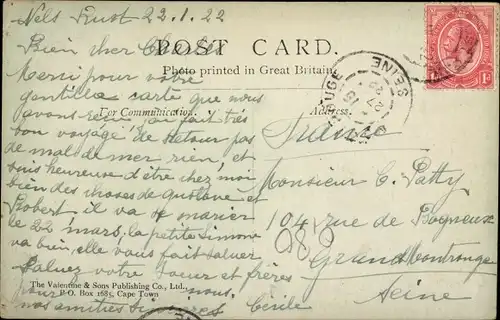 Nels Rust 22.1.22
Bien cher Charles
POST CARD.
Photo printed in Great Britain.
Merci pour votre
gentille carte que nous
avons reçu
fait très
For Communication.
Address.
bon voyage de retour pas
de mal de mer rien, et
suis heureuse d'être chez moi
bien des choses de Gustave et
Robert. il va se marier
le 22 mars, la petite Simone
va bien, elle vous fait saluer
Saluez votre soeur et frères
The Valentine & Sons Publishing Co., Ltd.,
P.O. Box 1685, Cape Town
pour nous.
nos amitiés sincères
Cécile
France
Monsieur C. Patty
104 rue de Bagneux
Grand Montrouge
Seine
MONTROUGE SEINE
1d